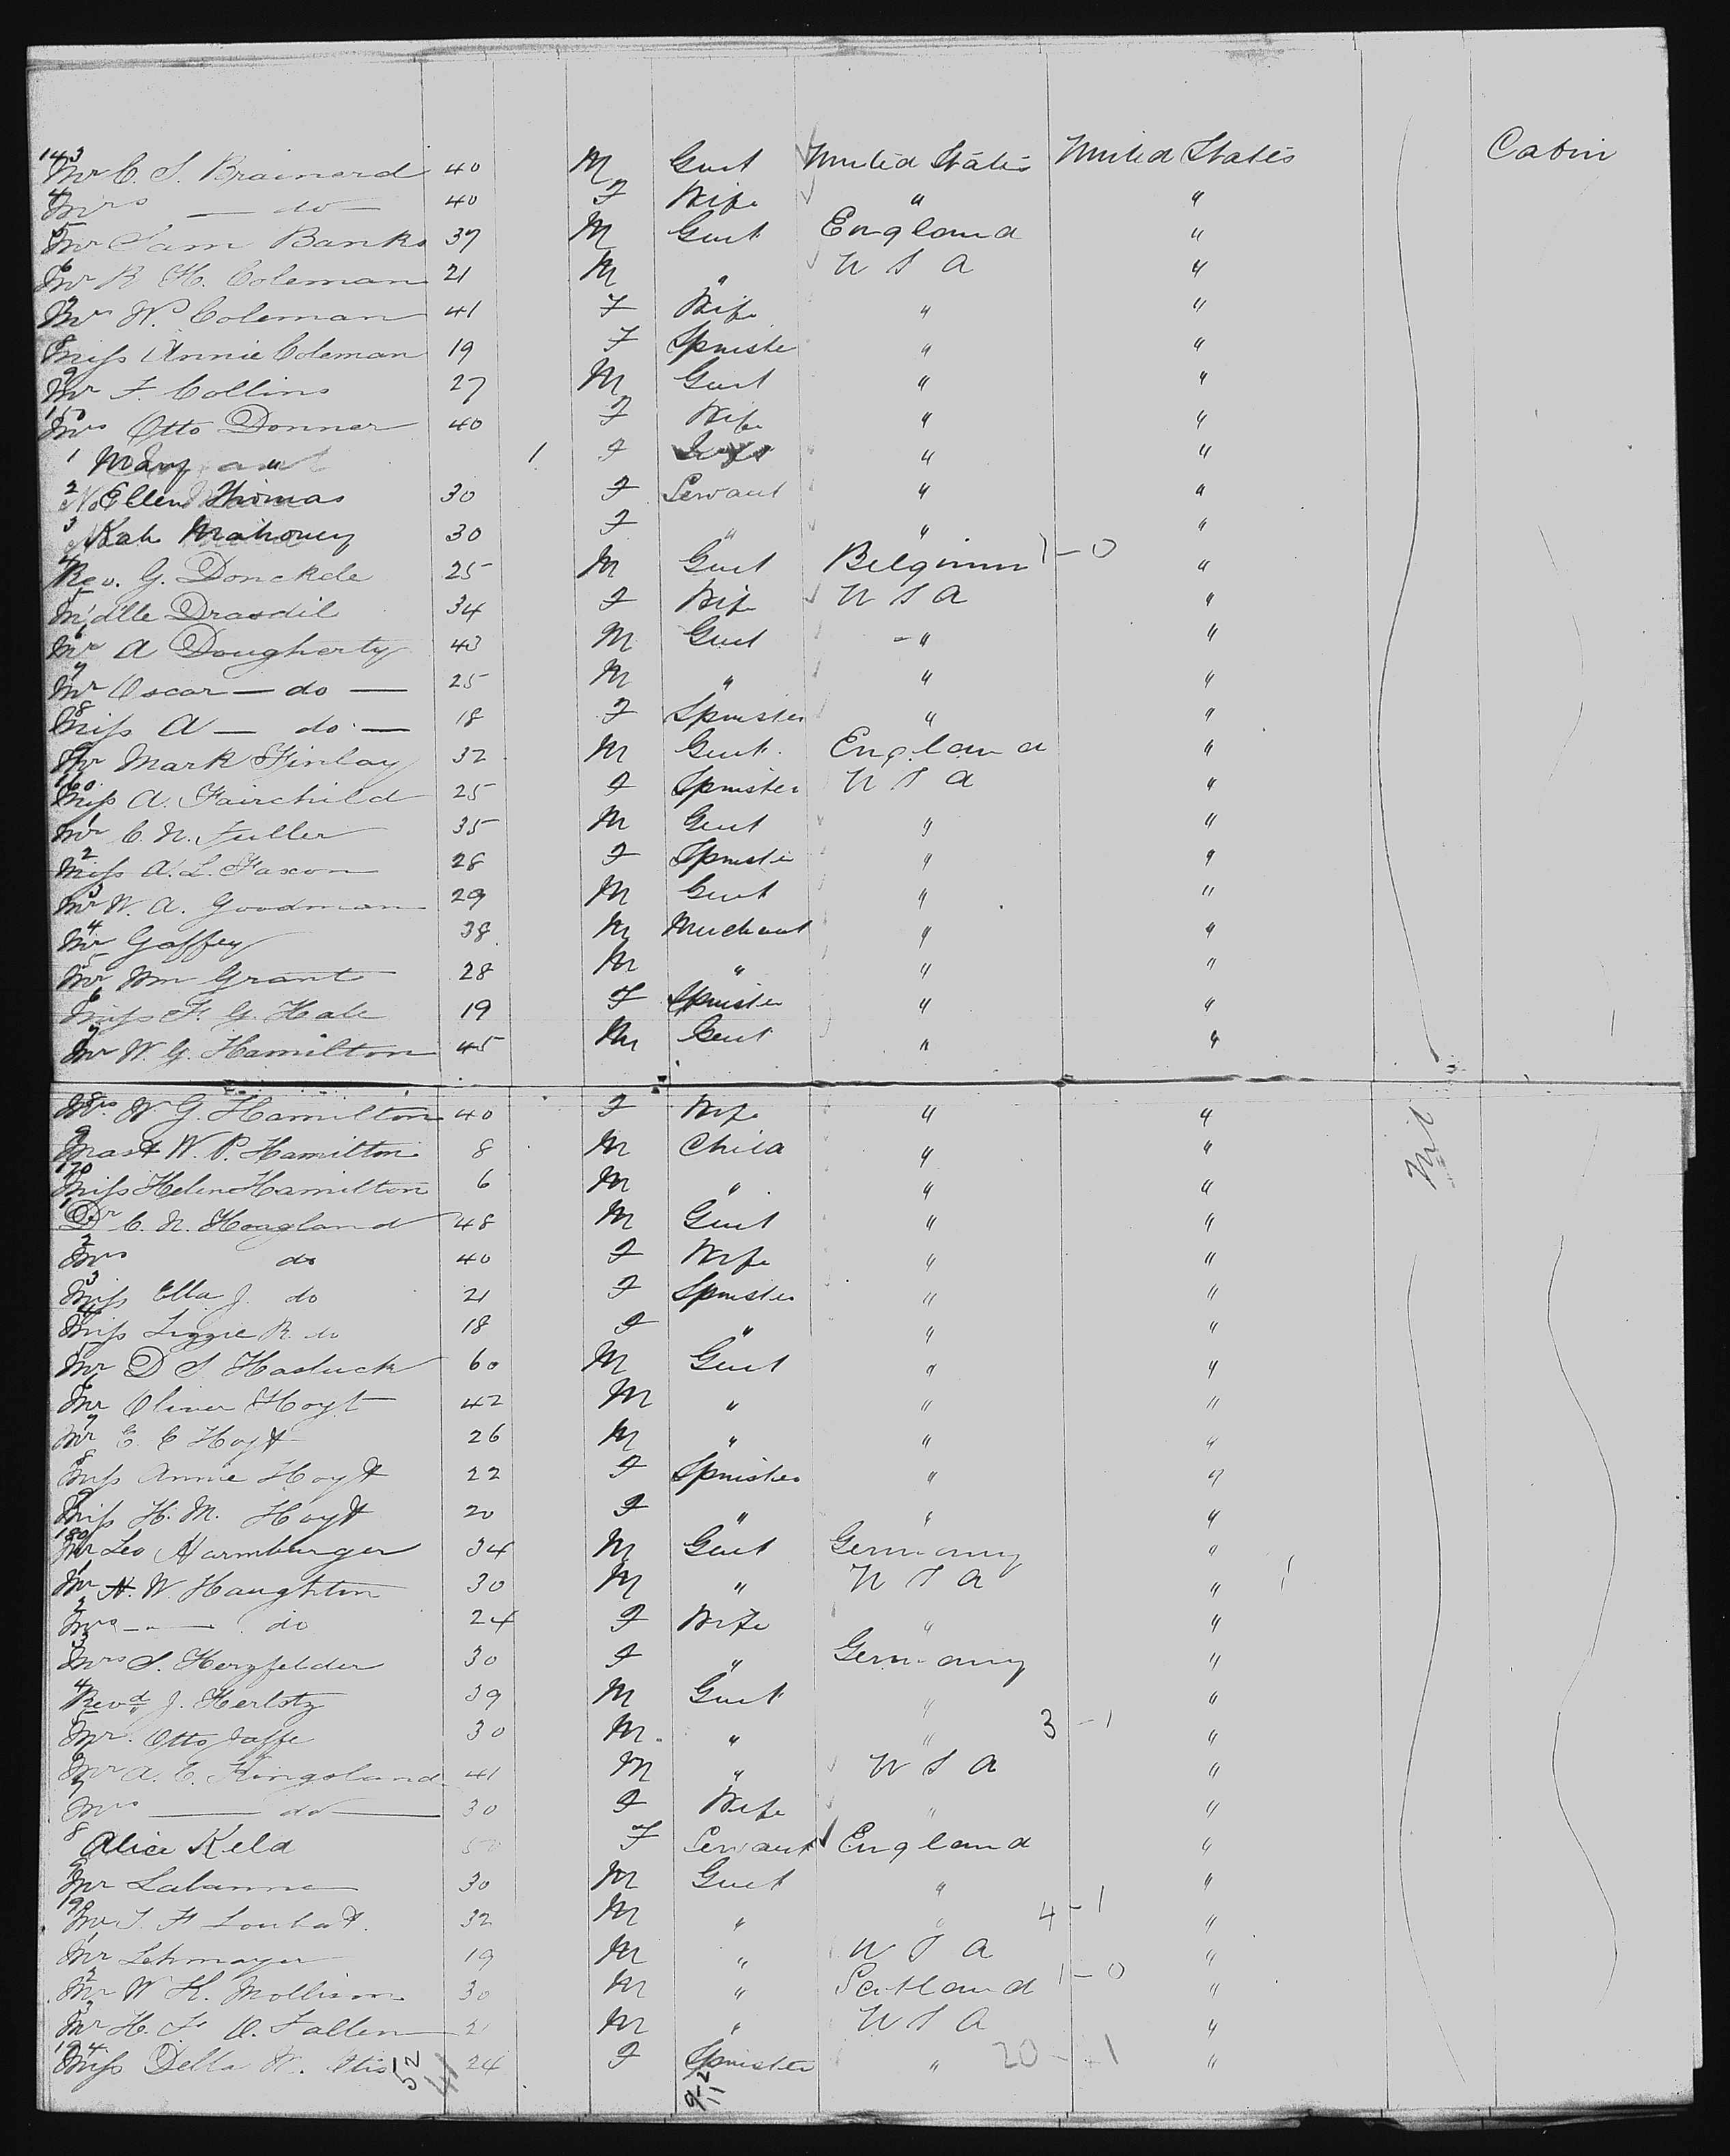 143 Mr C. S. Brainerd 40 M Gent United States United States Cabin
4 Mrs — do — 40 F Wife " "
5 Mr Sam Banks 37 M Gent England "
6 Mr R H. Coleman 21 M " U S A "
7 Mrs W. Coleman 41 F Wife " "
8 Miss Annie Coleman 19 F Spinster " "
9 Mr F. Collins 27 M Gent " "
150 Mrs Otto Donner 40 F Wife " "
1 Mary 1 F " "
2 Ellen Thomas 30 F Servant " "
3 Kate Mahoney 30 F " " "
4 Rev. G. Donckele 25 M Gent Belgium 1 - 0 "
5 M'dlle Drasdil 34 F Wife U S A "
6 Mr A Dougherty 43 M Gent " "
7 Mr Oscar — do — 25 M " " "
8 Miss A — do — 18 F Spinster " "
9 Mr Mark Finlay 32 M Gent England "
160 Miss A. Fairchild 25 F Spinster U S A "
1 Mr C. N. Fuller 35 M Gent " "
2 Miss A. L. Faxon 28 F Spinster " "
3 Mr W. A. Goodman 29 M Gent " "
4 Mr Gaffey 38 M Merchant " "
5 Mr Wm Grant 28 M " " "
6 Miss F. G. Hale 19 F Spinster " "
7 Mr W. G. Hamilton 45 M Gent " "
8 Mrs W G. Hamilton 40 F Wife " " Nil
9 Mast W. P. Hamilton 8 M Child " "
170 Miss Helen Hamilton 6 M " " "
1 Dr C. N. Hoagland 48 M Gent " "
2 Mrs do 40 F Wife " "
3 Miss Ella J. do 21 F Spinster " "
4 Miss Lizzie R. do 18 F " " "
5 Mr D S Hasluck 60 M Gent " "
6 Mr Oliver Hoyt 42 M " " "
7 Mr E. C Hoyt 26 M " " "
8 Miss Annie Hoyt 22 F Spinster " "
9 Miss H. M. Hoyt 20 F " " "
180 Mr Leo Harmburger 34 M Gent Germany "
1 Mr H. W. Haughton 30 M " U S A "
2 Mrs — do 24 F Wife " "
3 Mrs S. Herzfelder 30 F " Germany "
4 Revd J. Herlotz 39 M Gent " "
5 Mr. Otto Jaffe 30 M " " 3 - 1 "
6 Mr A. C. Kingsland 41 M " U S A "
7 Mrs — do — 30 F Wife " "
8 Alice Keld 50 F Servant England "
9 Mr Labanne 30 M Gent " "
190 Mr J. F Loubat. 32 M " " 4 - 1 "
1 Mr Lehmayer 19 M " U S A "
2 Mr W K. Mollison 30 M " Scotland 1 - 0 "
3 Mr H. F. O. Fallen 2 M " U S A "
194 Miss Della W. Otis 24 F Spinster " 20 - 1 "
52 41 9-2 11